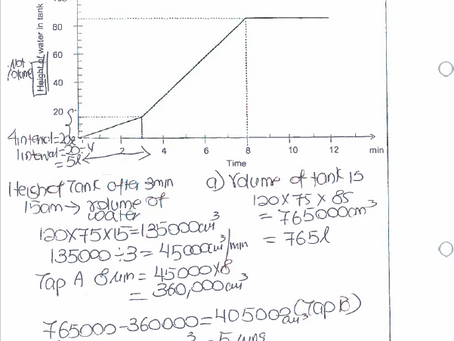 100
80
60
40
20
Height of water in tank
Not
Volume
4 interval = 20l
1 interval = 20 ÷ 4
= 5l
2 4 6 8 10 12 min
Time
Height of Tank after 3min
15cm → volume of
water
120x75x15=135000cm³
135000÷3=45000cm³/min
Tap A 8min = 45000x8
= 360,000cm³
a) Volume of tank is
120 x 75 x 85
= 765000cm³
= 765l
765000-360000=405000 cm³ (Tap B)